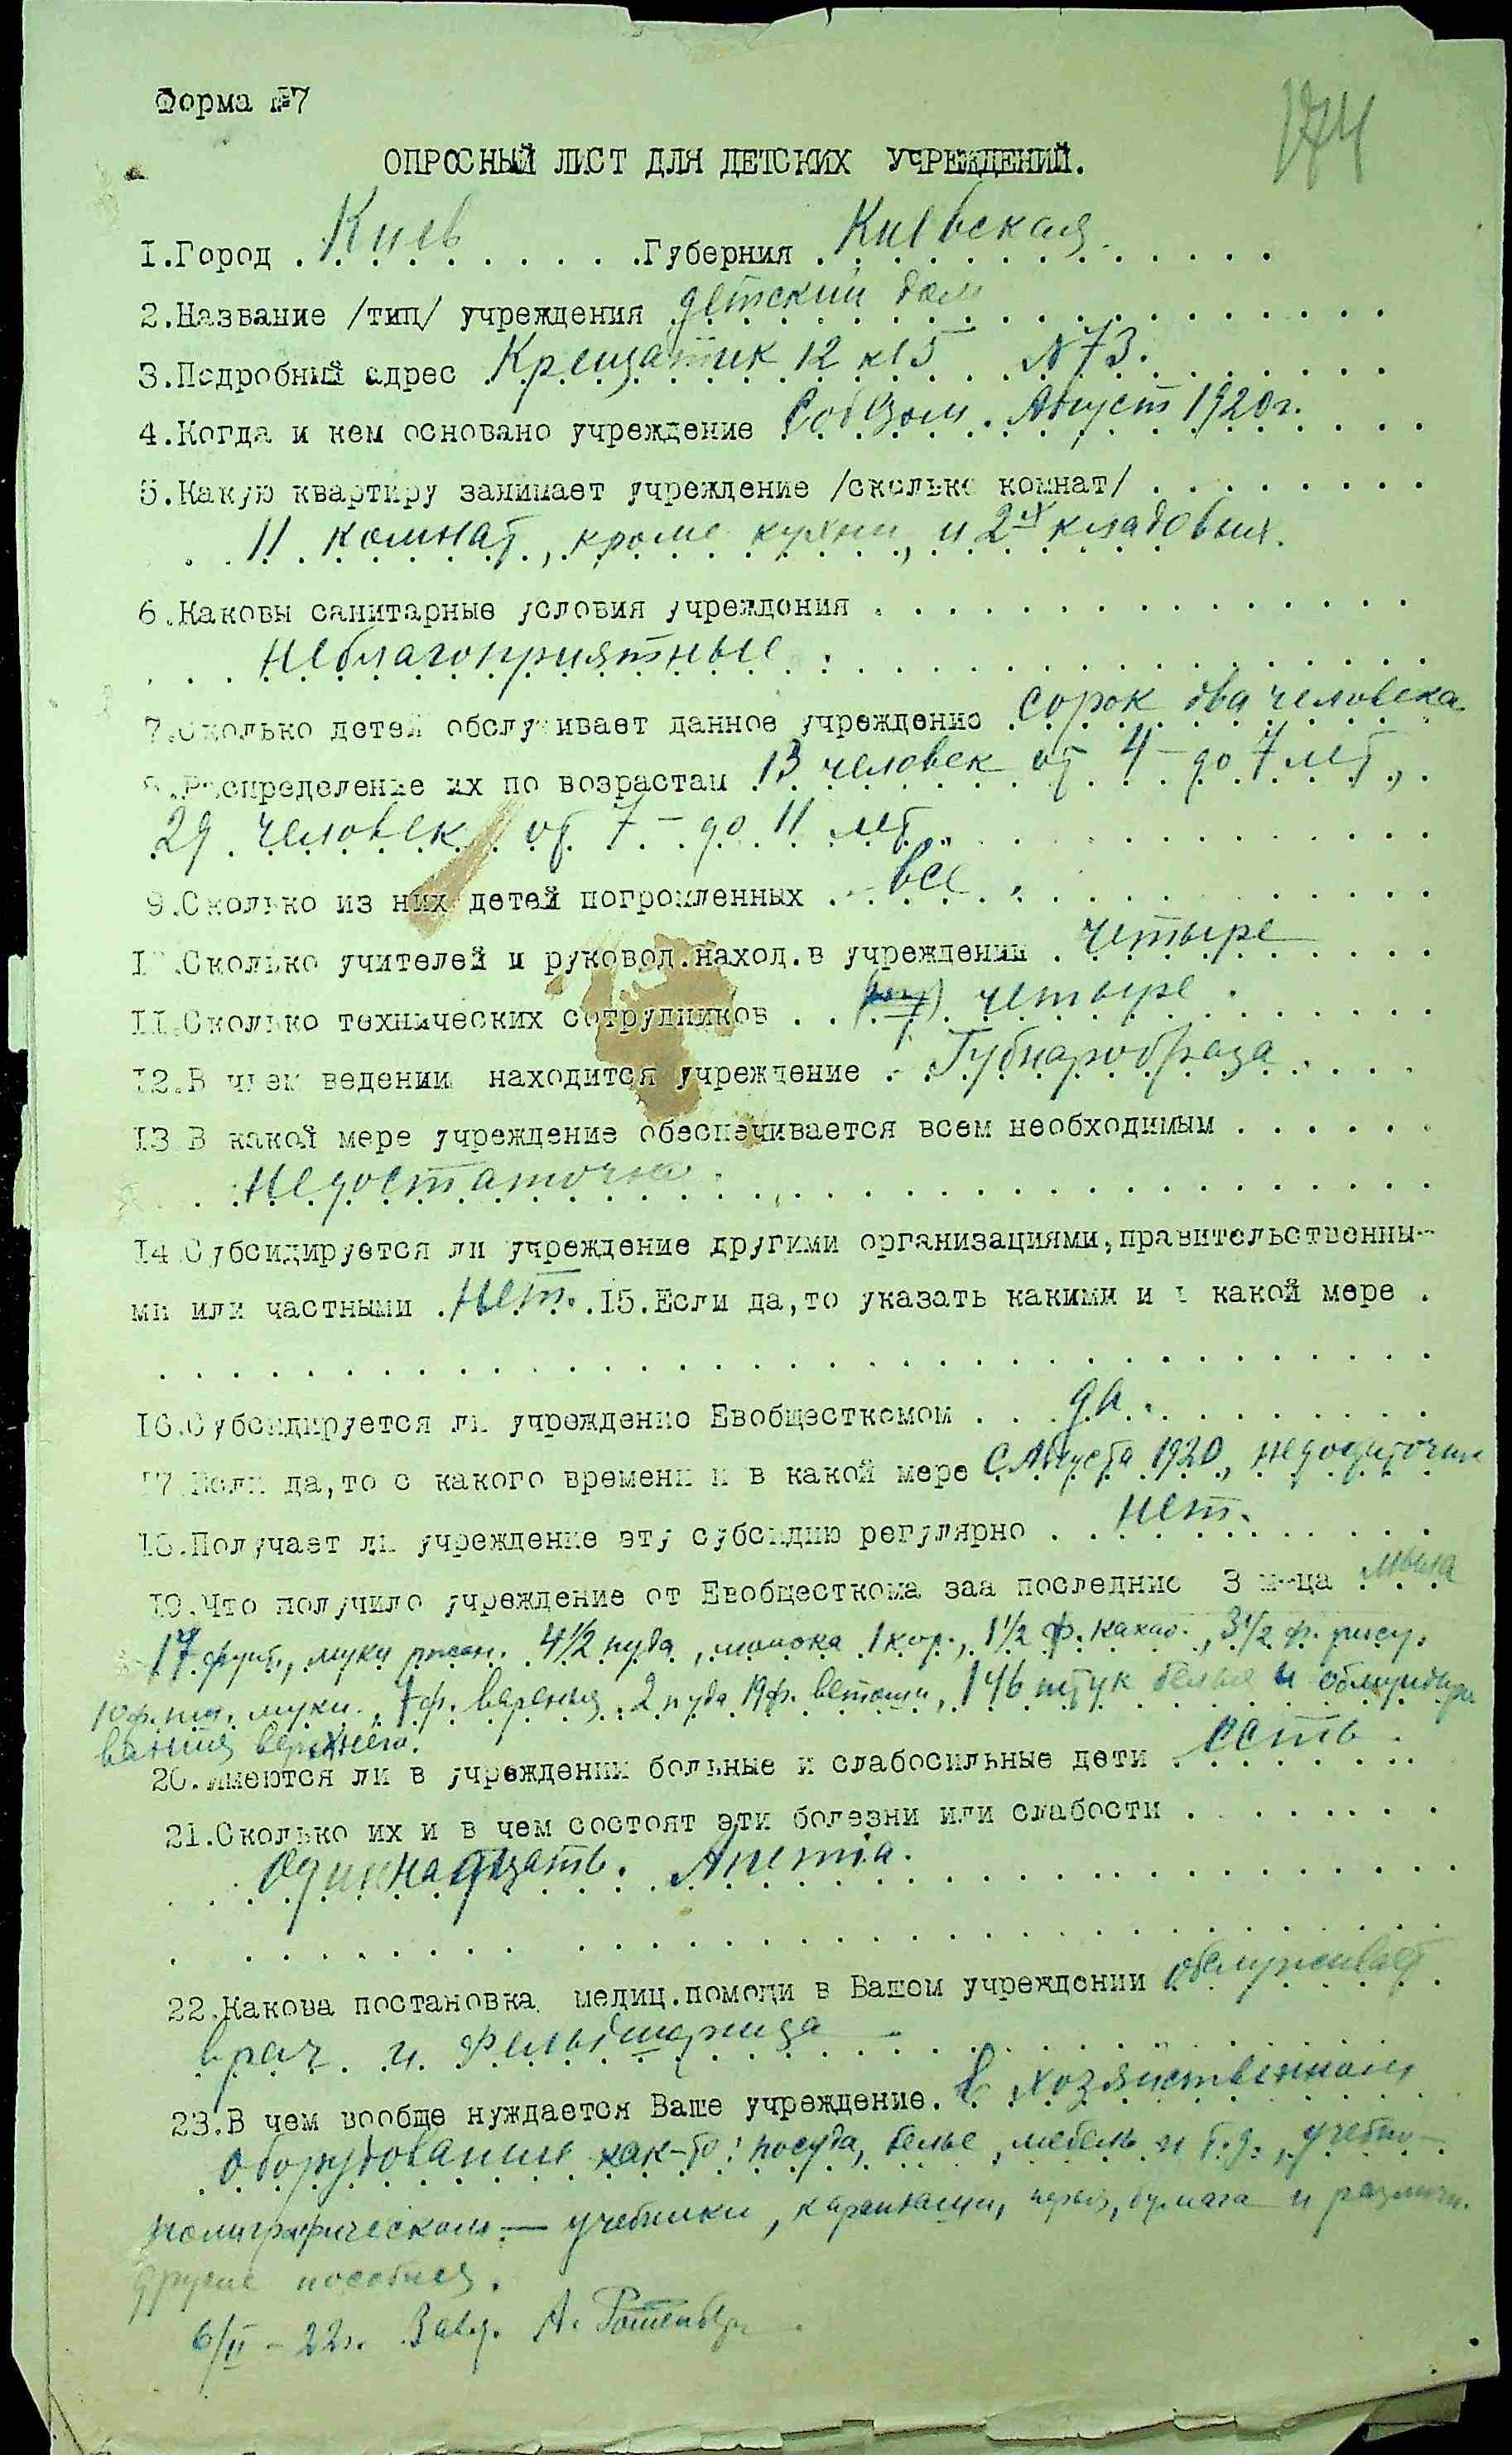 Форма №7
174
ОПРОСНЫЙ ЛИСТ ДЛЯ ДЕТСКИХ УЧРЕЖДЕНИЙ.
1.Город . Киев . . . . . Губерния . Киевская . . . .
2.Название /тип/ учреждения детский дом
3.Подробный адрес Крещатик 12 кв 5 N 73.
4.Когда и кем основано учреждение Собезом. Август 1920г.
5.Какую квартиру занимает учреждение /сколько комнат/ . . . . . . . .
11 комнат, кроме кухни, и 2х кладовых.
6.Каковы санитарные условия учреждения . . . . . . . . . . . . . . .
неблагоприятные
7.Сколько детей обслуживает данное учреждение сорок два человека
8.Распределение их по возрастам 13 человек от 4 - до 7 лет,
29 человек от 7 - до 11 лет.
9.Сколько из них детей погромленных . все .
10.Сколько учителей и руковод.наход.в учреждении . четыре
11.Сколько технических сотрудников . . четыре .
12.В чьем ведении находится учреждение . Губнаробраза .
13 В какой мере учреждение обеспечивается всем необходимым . . . . . .
недостаточно
14.Субсидируется ли учреждение другими организациями,правительственны-
ми или частными . Нет. .15.Если да,то указать какими и в какой мере .
16.Субсидируется ли учреждение Евобщесткомом . . да .
17.Если да,то с какого времени и в какой мере С Августа 1920, недостаточно
18.Получает ли учреждение эту субсидию регулярно . . нет.
19.Что получило учреждение от Евобщесткома заа последние 3 м-ца мыла
17 фунт., муки ржан. 4½ пуда, молока 1 кор., 1½ ф. какао., 3½ ф. рису.
10 ф. пш. муки., 1 ф. варенья. 2 пуда 19 ф. ветоши, 146 штук белья и обмундиро
вания верхнего.
20.Имеются ли в учреждении больные и слабосильные дети . есть .
21.Сколько их и в чем состоят эти болезни или слабости . . . . . . . .
Одиннадцать. Anemia.
22.Какова постановка медиц.помощи в Вашем учреждении обслуживает
врач и фельдшерица
23.В чем вообще нуждается Ваше учреждение. В хозяйственном
оборудовании как-то: посуда, белье, мебель и т.д., учебно-
полиграфическом — учебники, карандаши, перья, бумага и различн.
другие пособия.
6/II - 22г. Завед. А. Ротенберг